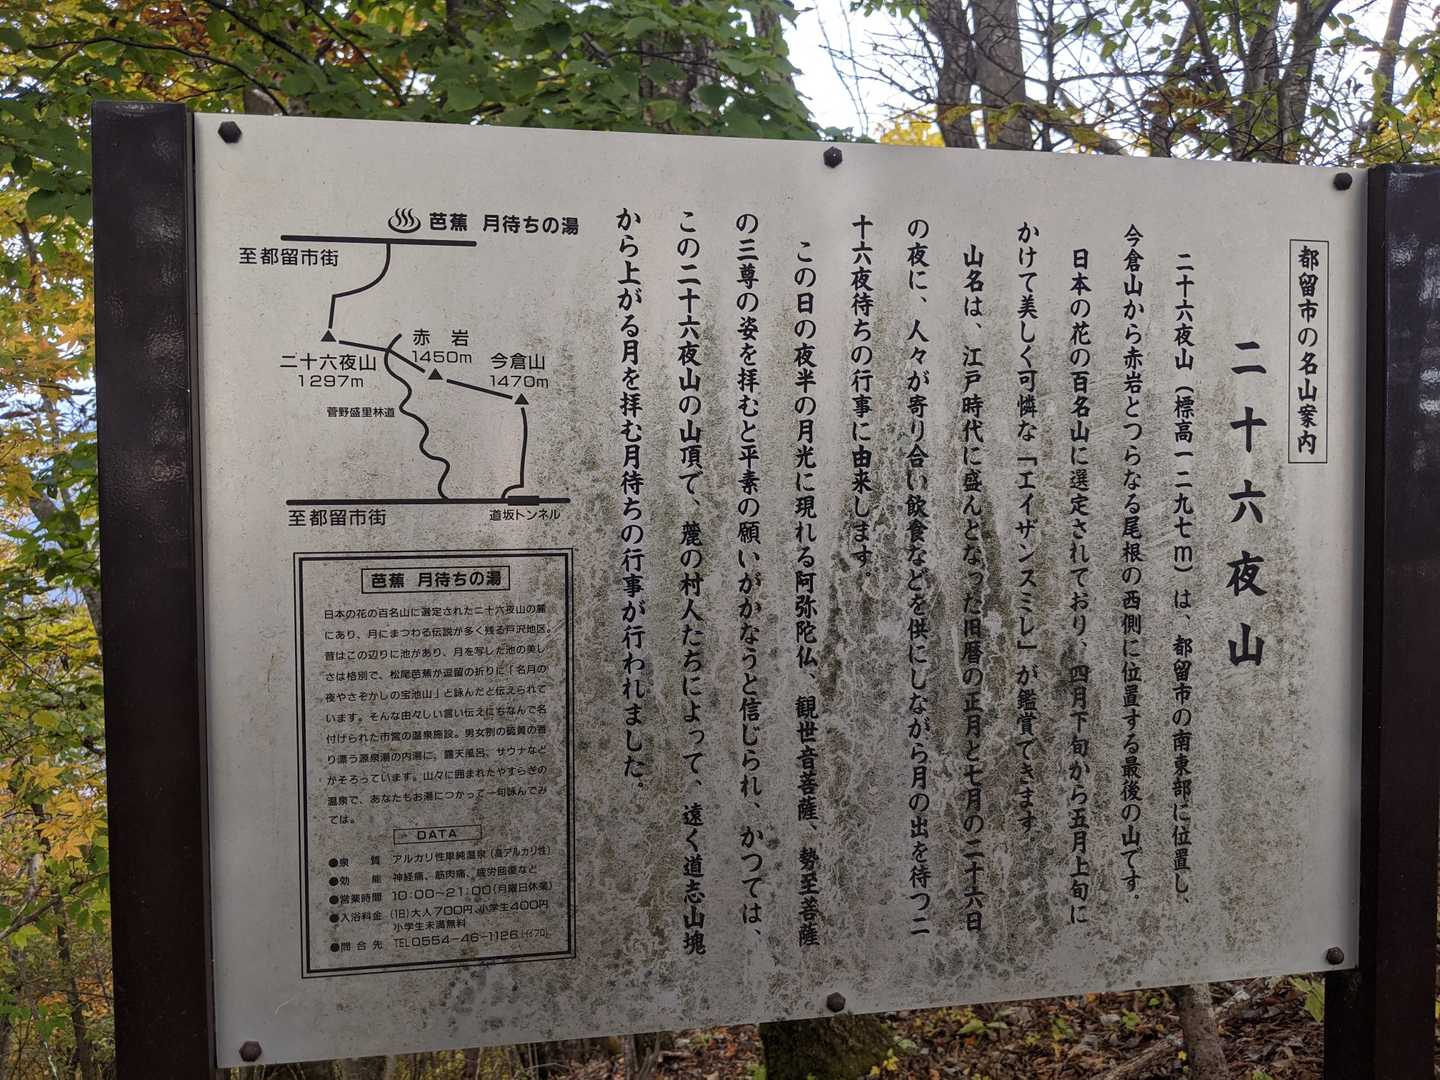 都留市の名山案内
二十六夜山
二十六夜山（標高一二九七ｍ）は、都留市の南東部に位置し、
今倉山から赤岩とつらなる尾根の西側に位置する最後の山です。
日本の花の百名山に選定されており、四月下旬から五月上旬に
かけて美しく可憐な「エイザンスミレ」が鑑賞できます
山名は、江戸時代に盛んとなった旧暦の正月と七月の二十六日
の夜に、人々が寄り合い飲食などを供にしながら月の出を待つ二
十六夜待ちの行事に由来します。
この日の夜半の月光に現れる阿弥陀仏、観世音菩薩、勢至菩薩
の三尊の姿を拝むと平素の願いがかなうと信じられ、かつては、
この二十六夜山の山頂で、麓の村人たちによって、遠く道志山塊
から上がる月を拝む月待ちの行事が行われました。
芭蕉 月待ちの湯
至都留市街
赤岩
1450m
二十六夜山
1297m
今倉山
1470m
菅野盛里林道
至都留市街
道坂トンネル
芭蕉 月待ちの湯
日本の花の百名山に選定された二十六夜山の麓
にあり、月にまつわる伝説が多く残る戸沢地区。
昔はこの辺りに池があり、月を写した池の美し
さは格別で、松尾芭蕉が逗留の折りに「名月の
夜やさぞかしの宝池山」と詠んだと伝えられて
います。そんな由々しい言い伝えにちなんで名
付けられた市営の温泉施設。男女別の硫黄の香
り漂う源泉湯の内湯に、露天風呂、サウナなど
がそろっています。山々に囲まれたやすらぎの
温泉で、あなたもお湯につかって一句詠んでみ
ては。
DATA
●泉質 アルカリ性単純温泉（高アルカリ性）
●効能 神経痛、筋肉痛、疲労回復など
●営業時間 10:00〜21:00（月曜日休業）
●入浴料金 （1日）大人700円、小学生400円
小学生未満無料
●問合先 TEL0554-46-1126